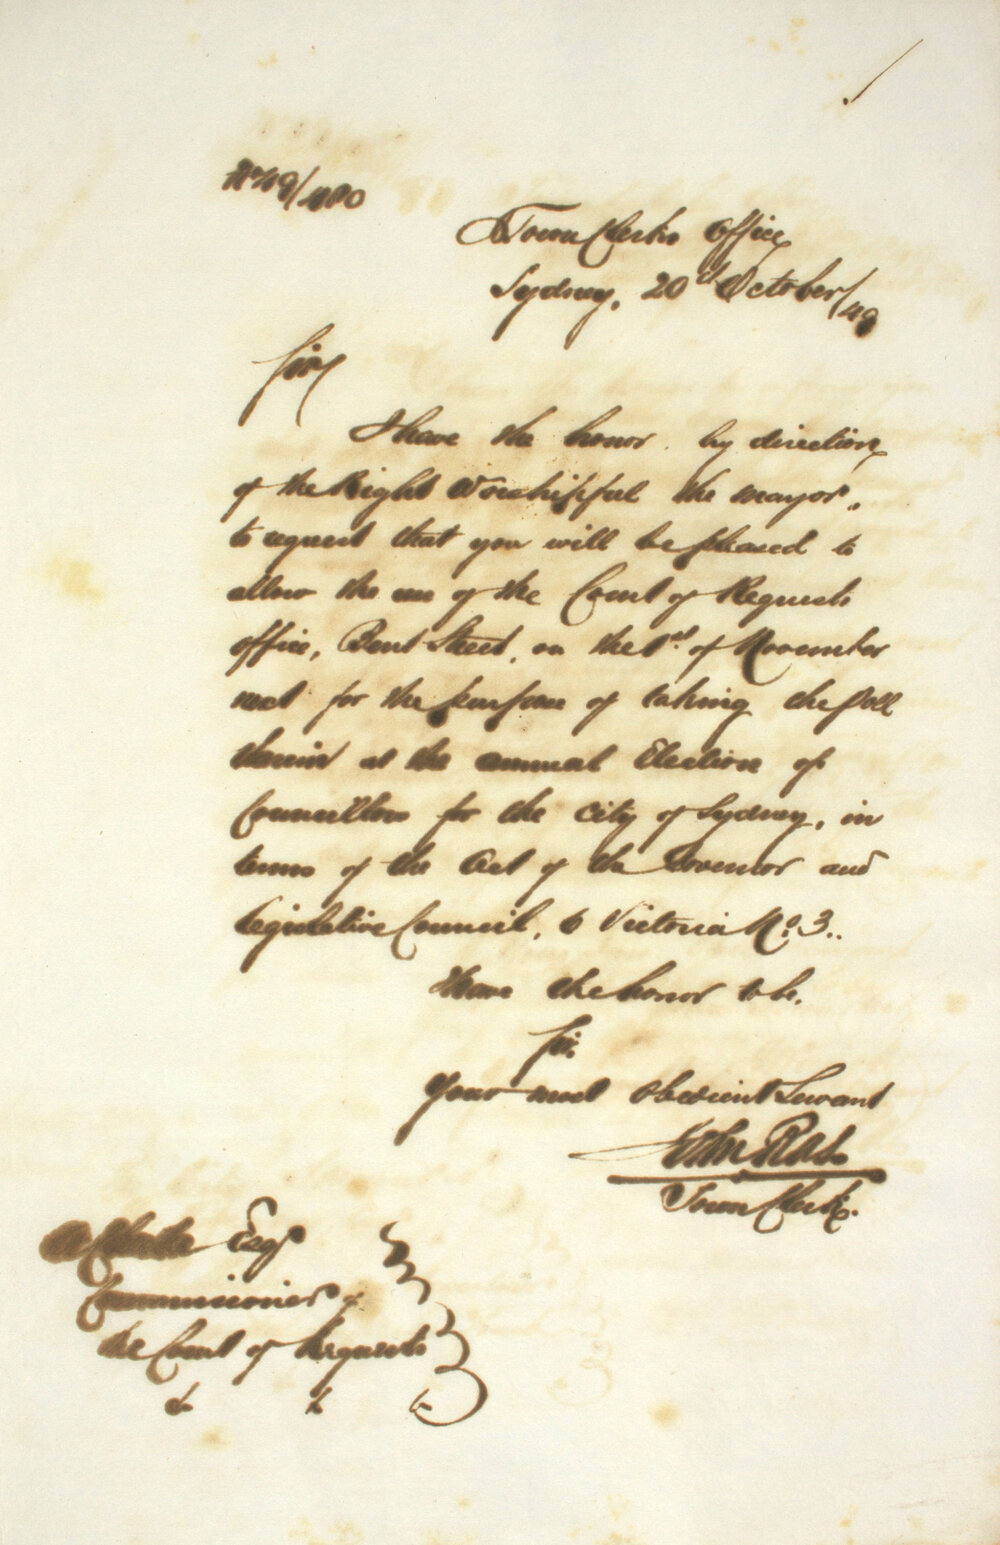 No 49/480
Town Clerks Office
Sydney, 20th October/49
Sir
I have the honor by direction
of the Right Worshipful the mayor,
to request that you will be pleased to
allow the use of the Court of Requests
office, Bent Street, on the 1st of November
next for the purpose of taking the poll
therein at the annual Election of
Councillors for the City of Sydney, in
terms of the Act of the Governor and
Legislative Council, 6 Victoria No. 3..
I have the honor to be,
Sir,
Your most obedient Servant
John Rae
Town Clerk.
Esqr
Commissioner of
the Court of Requests
& & &